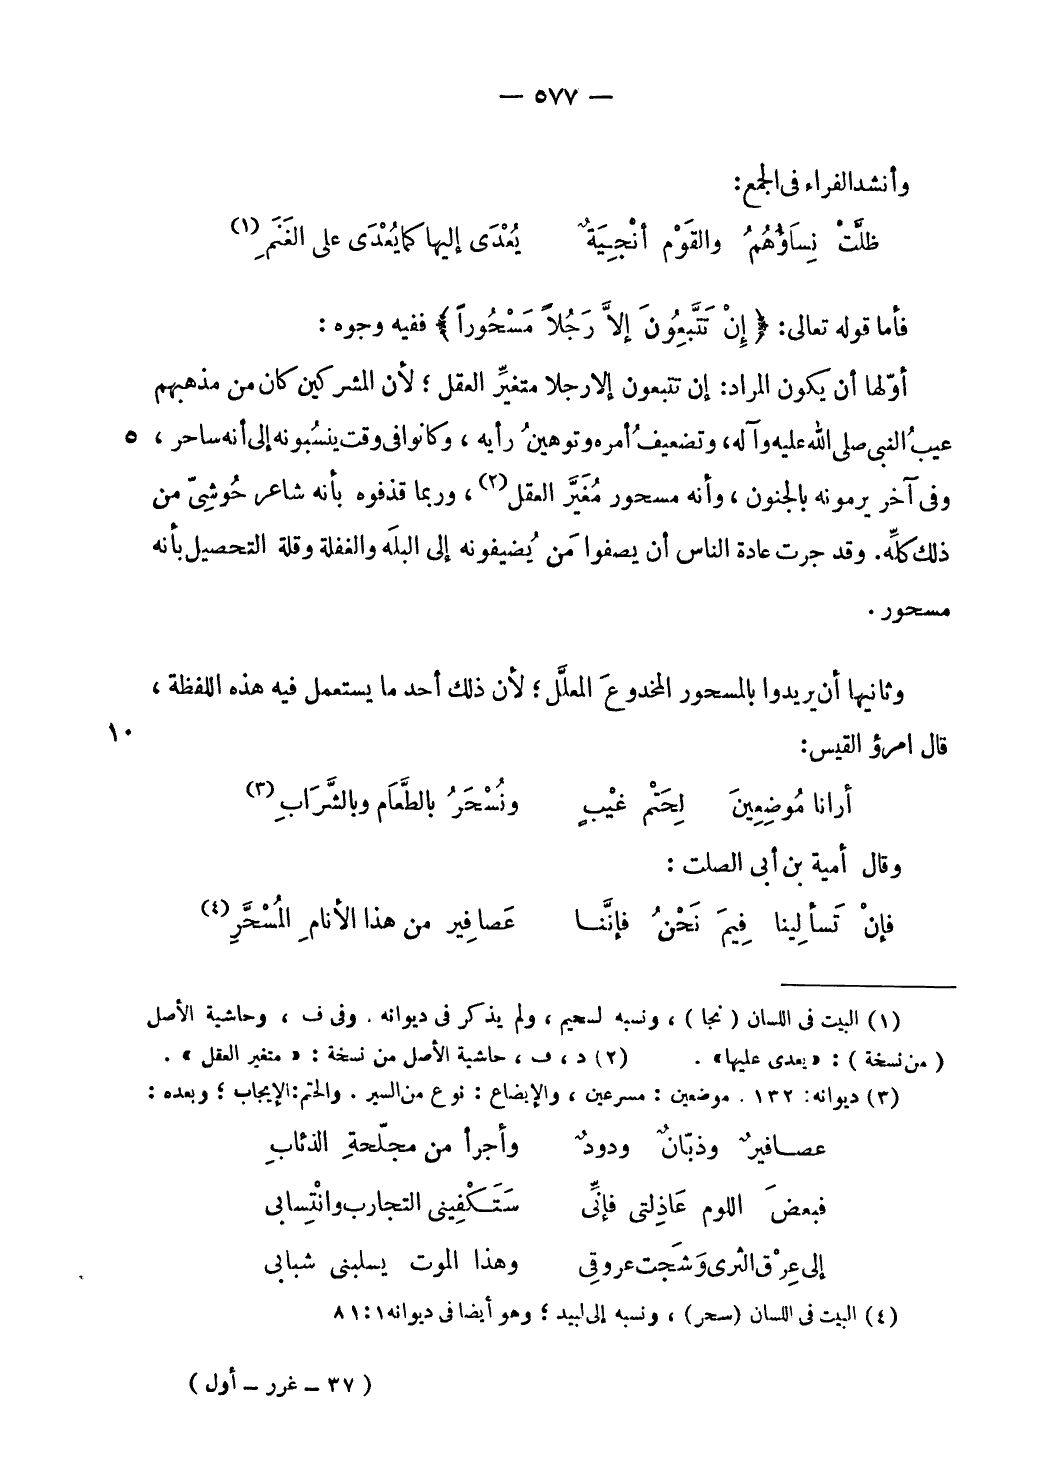 — ٥٧٧ —
وأنشد الفراء فى الجمع:
ظلَّتْ نِسَاؤُهُمُ والقَوْم أنْجِيَةٌ يُعْدَى إليها كما يُعْدَى على الغَنَمِ (١)
فأما قوله تعالى: ﴿ إِنْ تَتَّبِعُونَ إلاَّ رَجُلاً مَسْحُوراً ﴾ ففيه وجوه :
أوّلها أن يكون المراد: إن تتبعون إلا رجلا متغيِّر العقل ؛ لأن المشركين كان من مذهبهم
عيبُ النبى صلى الله عليه وآله، وتضعيفُ أمره وتوهينُ رأيه ، وكانوا فى وقت ينسُبونه إلى أنه ساحر ، ٥
وفى آخر يرمونه بالجنون ، وأنه مسحور مُغَيَّر العقل (٢) ، وربما قذفوه بأنه شاعر حُوشِىّ من
ذلك كلِّه. وقد جرت عادة الناس أن يصفوا مَن يُضيفونه إلى البلَه والغفلة وقلة التحصيل بأنه
مسحور .
وثانيها أن يريدوا بالمسحور المخدوعَ المعلَّل ؛ لأن ذلك أحد ما يستعمل فيه هذه اللفظة ،
قال امرؤ القيس: ١٠
أرانا مُوضِعِينَ لِحَتْم غيْبٍ ونُسْحَرُ بالطَّعَام وبالشَّرَابِ (٣)
وقال أمية بن أبى الصلت :
فإنْ تَسأَلِينا فِيمَ نَحْنُ فإنَّنا عَصافِير من هذا الأنامِ المُسْحَّرِ (٤)
(١) البيت فى اللسان ( نجا ) ، ونسبه لسحيم ، ولم يذكر فى ديوانه . وفى ف ، وحاشية الأصل
( من نسخة ) : « يعدى عليها» . (٢) د ، ف ، حاشية الأصل من نسخة : « متغير العقل » .
(٣) ديوانه: ١٣٢ . موضعين : مسرعين ، والإيضاع : نوع من السير . والحتم: الإيجاب ؛ وبعده :
عصافيرٌ وذبّانٌ ودودٌ وأجرأ من مجلّحةِ الذئابِ
فبعضَ اللوم عَاذِلتى فإنِّى سَتَكْفِينى التجارب وانْتِسابى
إلى عِرْق الثرى وَشَجَت عروقى وهذا الموت يسلبنى شبابى
(٤) البيت فى اللسان (سحر) ، ونسبه إلى لبيد ؛ وهو أيضا فى ديوانه ١ : ٨١
( ٣٧ – غرر – أول )